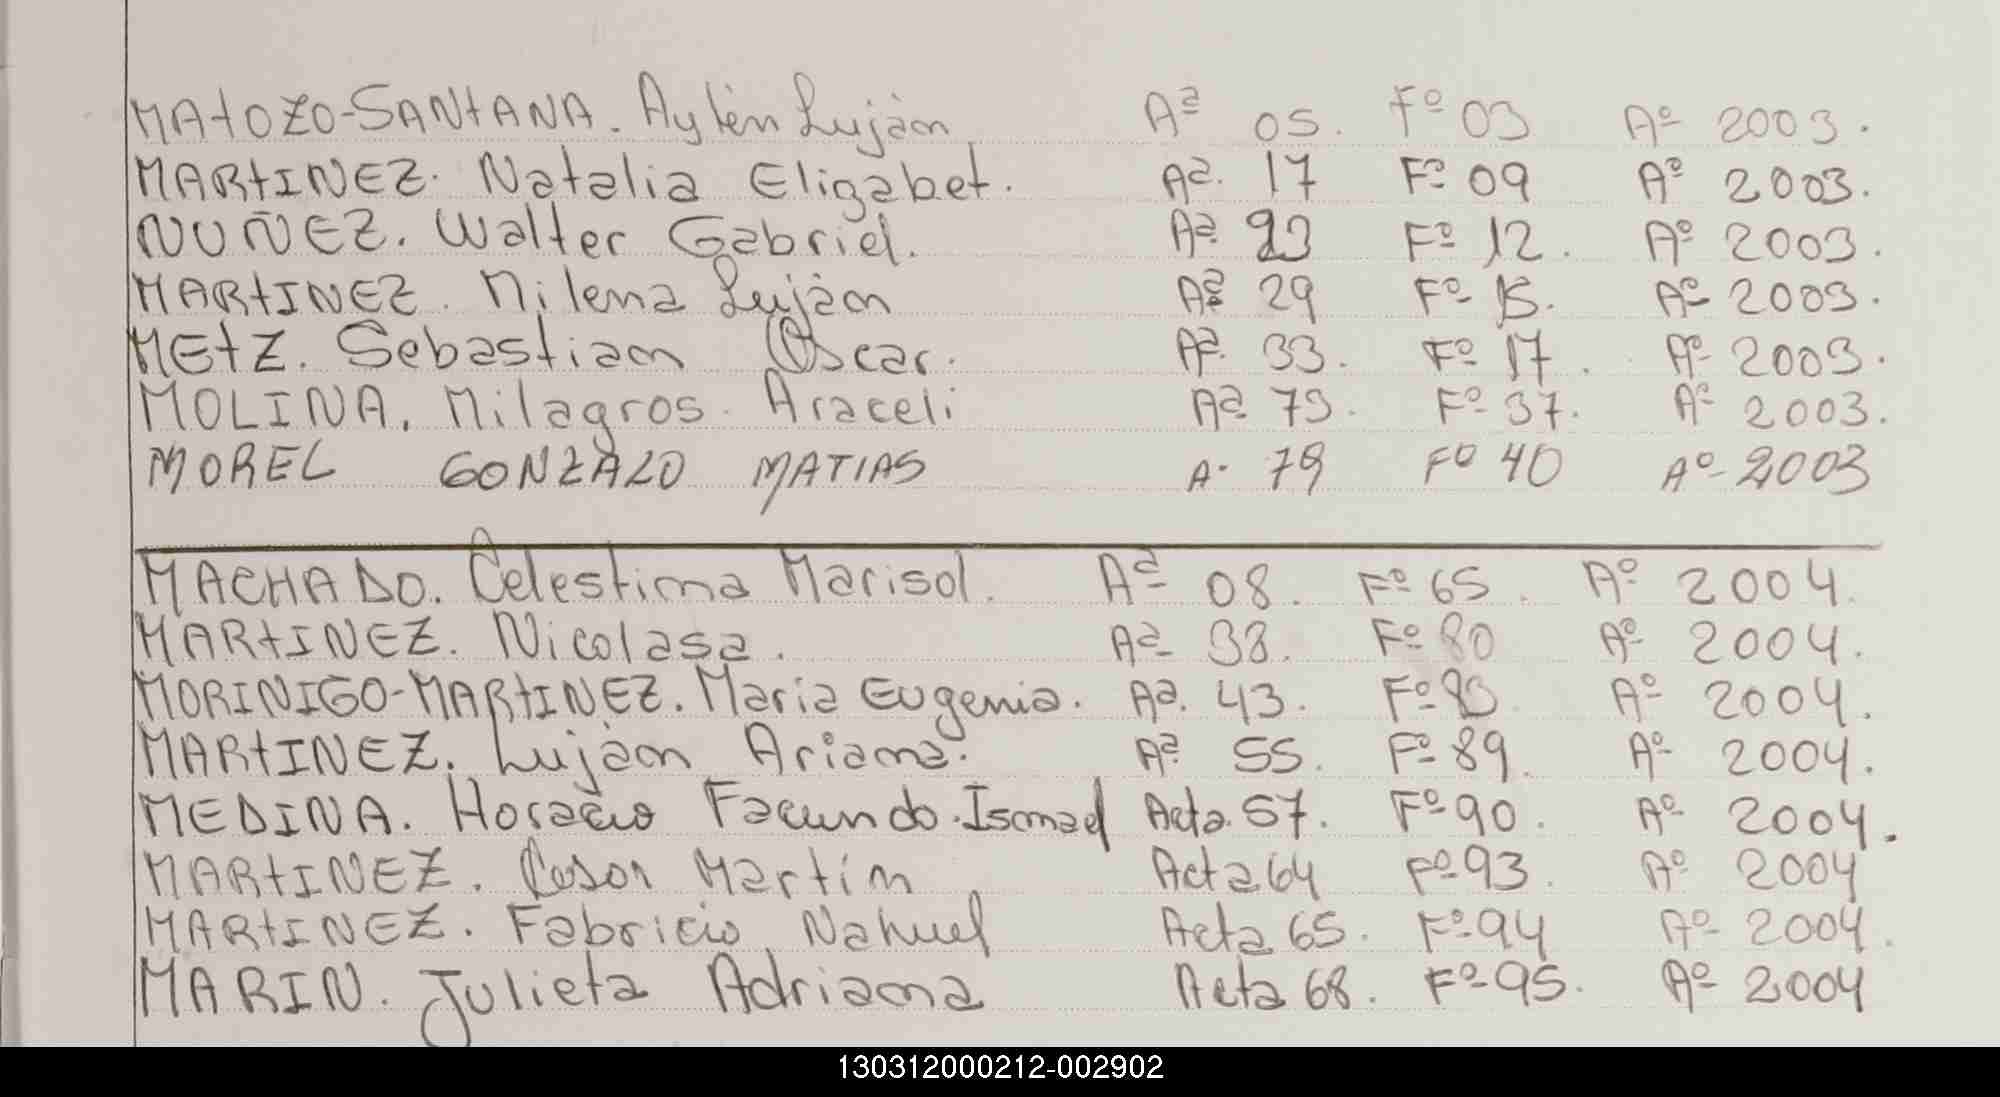 MAtOZO-SANtANA. Aylén Luján Aª 05. Fº 03 Aº 2003.
MARtINEZ. Natalia Elizabet. Aª. 17 Fº 09 Aº 2003.
NUÑEZ. Walter Gabriel. Aª 23 Fº 12. Aº 2003.
MARtINEZ. Milena Luján Aª 29 Fº 15. Aº 2003.
MEtZ. Sebastian Oscar. Aª. 33. Fº 17. Aº 2003.
MOLINA. Milagros Araceli Aª 73. Fº 37. Aº 2003.
MOREL GONZALO MATIAS A. 79 Fº 40 Aº 2003
MACHADO. Celestina Marisol. Aª 08. Fº 65. Aº 2004.
MARtINEZ. Nicolasa. Aª 38. Fº 80 Aº 2004.
MORINIGO-MARtINEZ. Maria Eugenia. Aª. 43. Fº 83 Aº 2004.
MARtINEZ. Luján Ariana. Aª 55. Fº 89. Aº 2004.
MEDINA. Horacio Facundo. Ismael Acta. 57. Fº 90. Aº 2004.
MARtINEZ. Cesar Martín Acta 64 Fº 93. Aº 2004
MARtINEZ. Fabricio Nahuel Acta 65. Fº 94 Aº 2004.
MARIN. Julieta Adriana Acta 68. Fº 95. Aº 2004
130312000212-002902